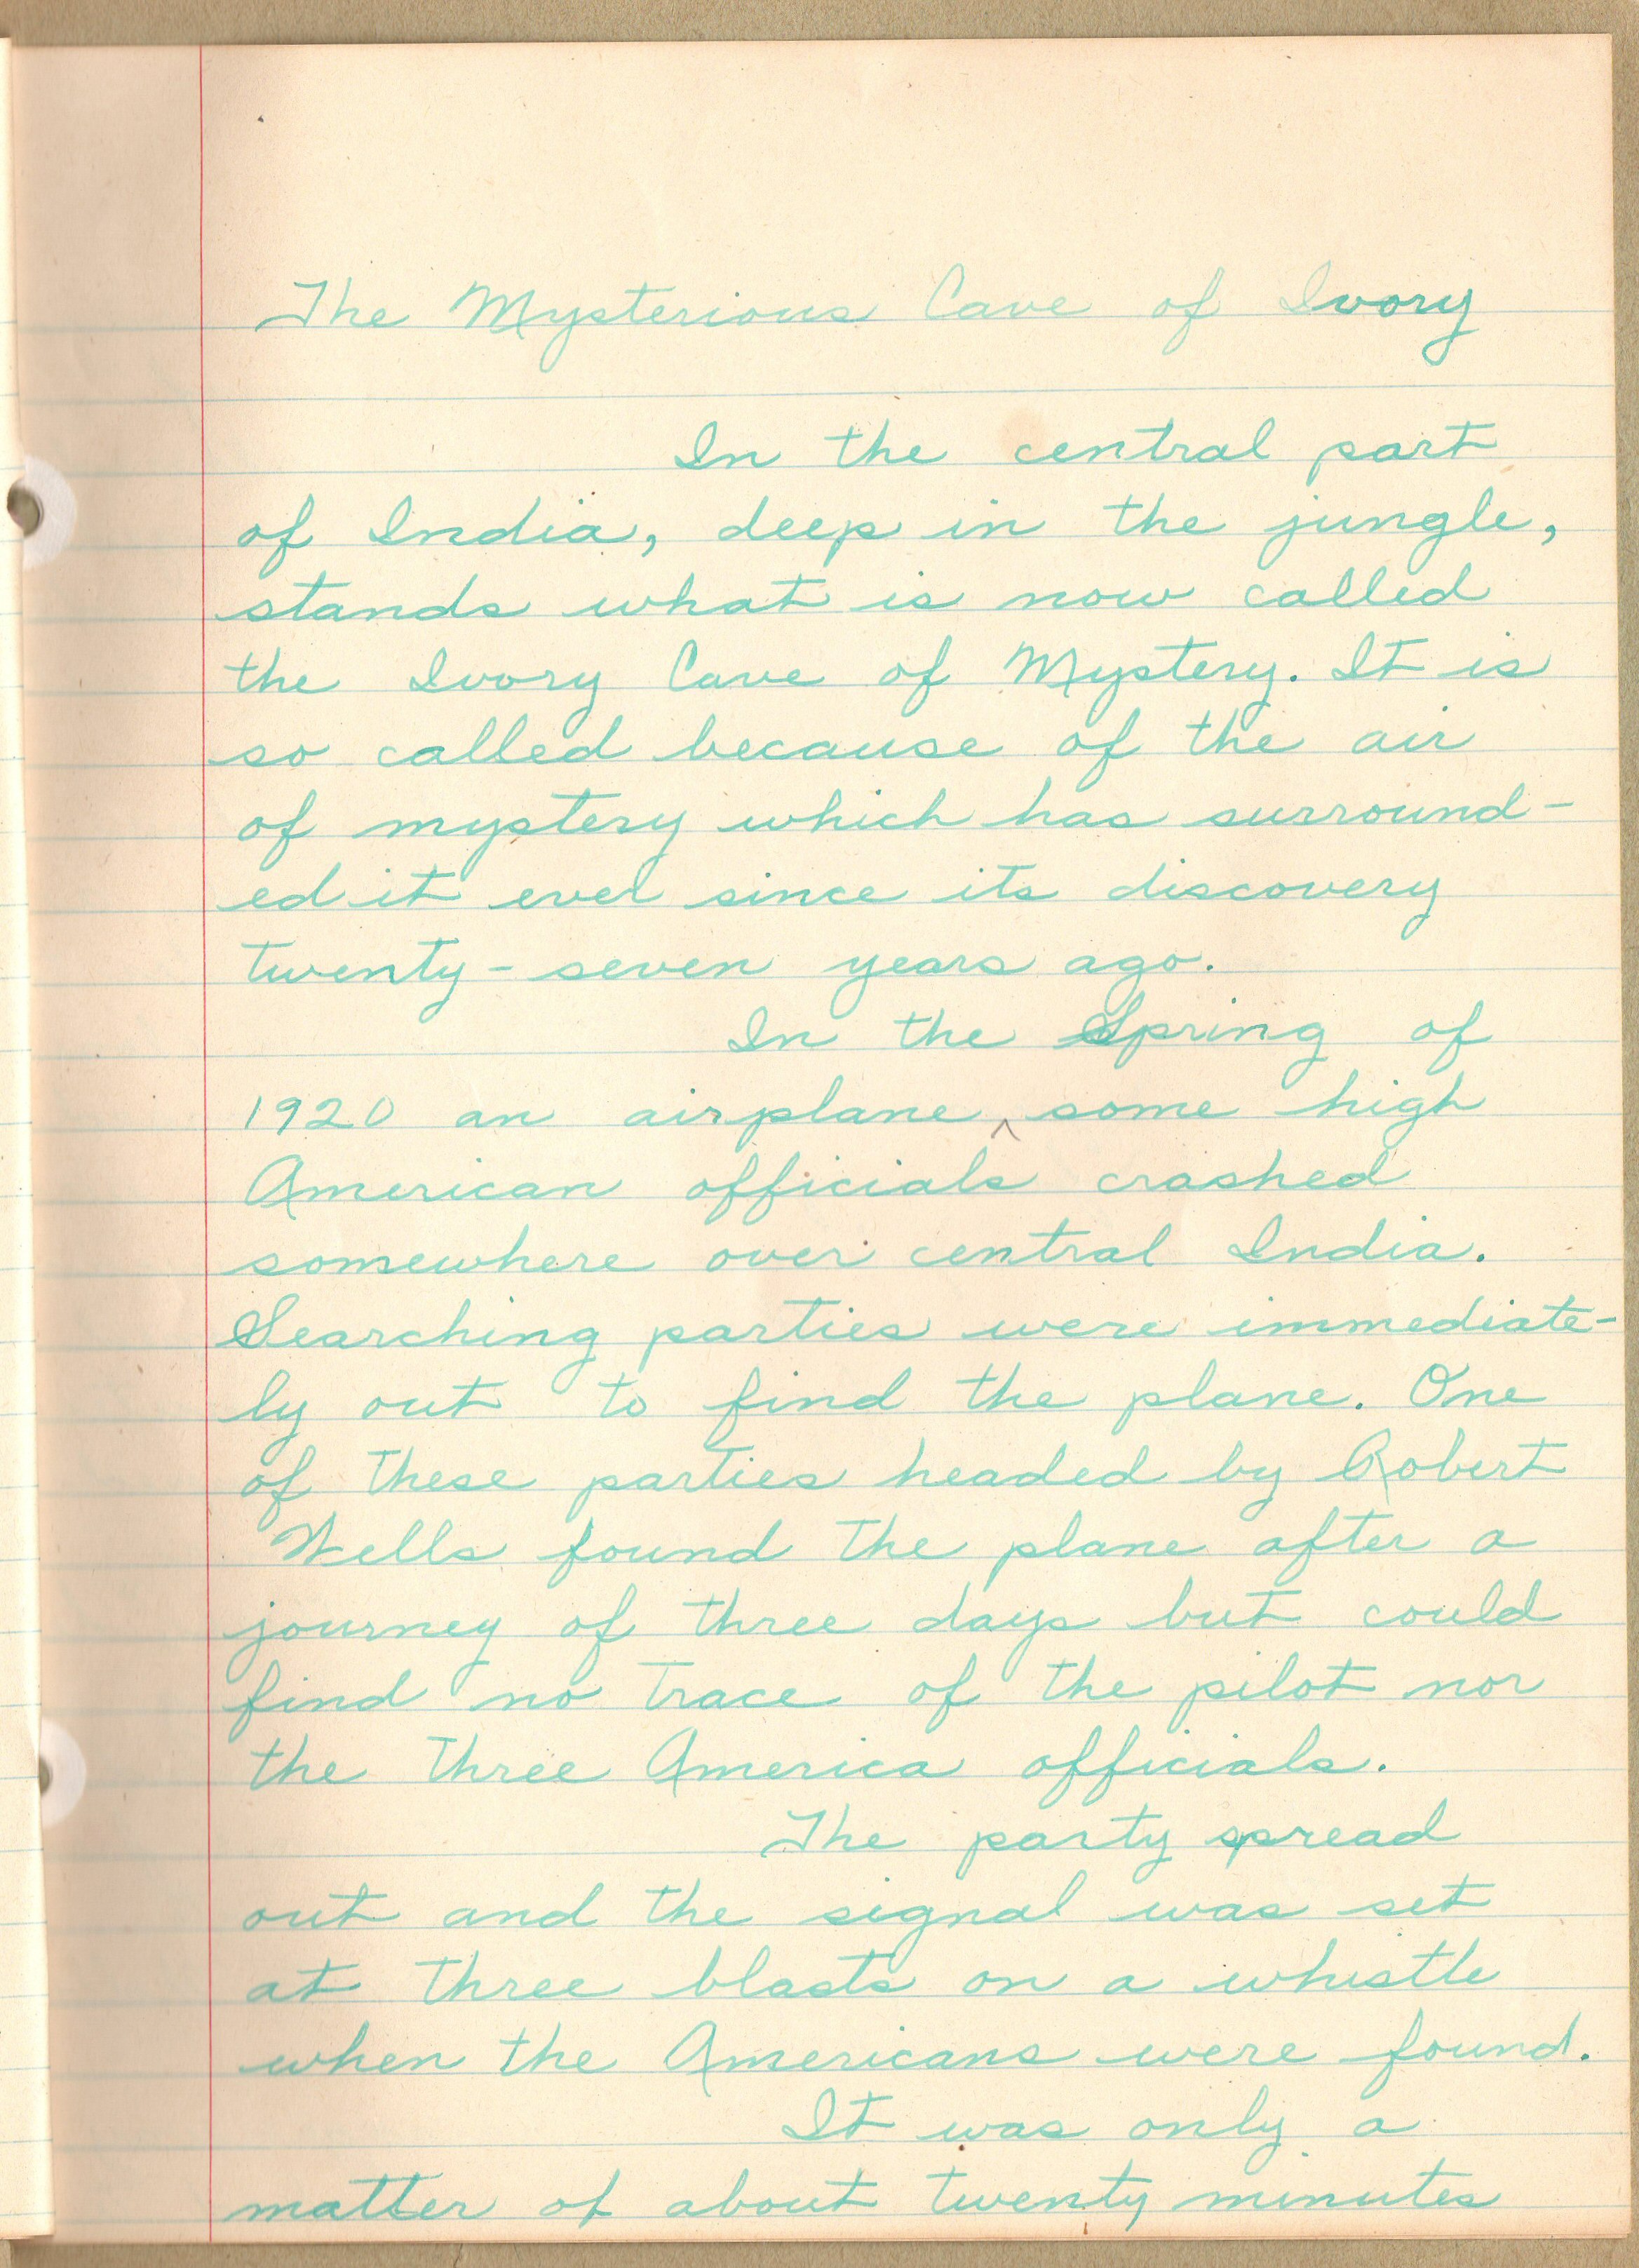 The Mysterious Cave of Ivory
In the central part
of India, deep in the jungle,
stands what is now called
the Ivory Cave of Mystery. It is
so called because of the air
of mystery which has surround-
ed it ever since its discovery
twenty-seven years ago.
In the Spring of
1920 an airplane ^ some high
American officials crashed
somewhere over central India.
Searching parties were immediate-
ly out to find the plane. One
of these parties headed by Robert
Wells found the plane after a
journey of three days but could
find no trace of the pilot nor
the three America officials.
The party spread
out and the signal was set
at three blasts on a whistle
when the Americans were found.
It was only a
matter of about twenty minutes